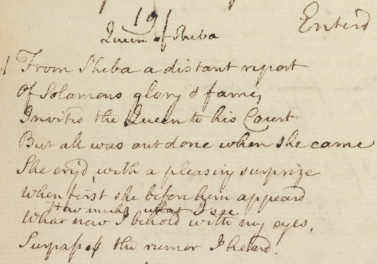 191 Enterd
Queen of Sheba
1 From Sheba a distant report
Of Solomons glory & fame,
Invites the Queen to his Court
But all was out done when she came
She cry'd, with a pleasing surprize
When first she before him appeard
How much what I see
What now I behold with my eyes,
Surpasses the rumor I heard.